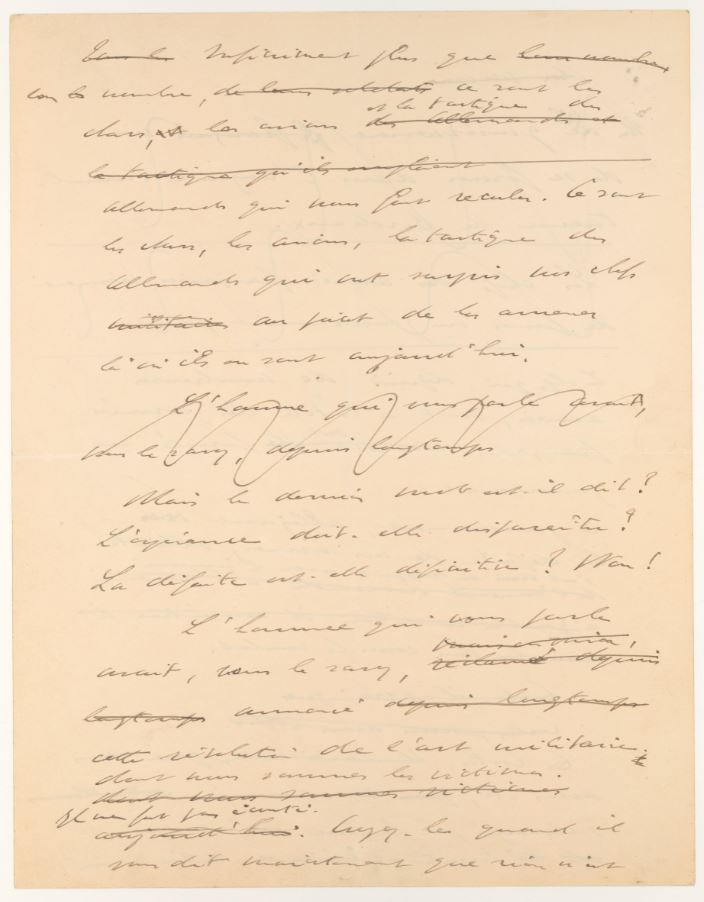 Tous les Infiniment plus que leur nombre,
nombre, de leurs soldats ce sont les
et la tactique des
chars, les avions des allemands et
la tactique qu'ils emploient
allemands qui nous font reculer. Ce sont
les chars, les avions, la tactique des
allemands qui ont surpris nos chefs
militaires au point de les amener
là où ils en sont aujourd'hui.
L'homme qui vous parle avait,
vous le savez, depuis longtemps
Mais le dernier mot est-il dit ?
L'espérance doit-elle disparaître ?
La défaite est-elle définitive ? Non !
L'homme qui vous parle
avait, vous le savez, réclamé depuis
longtemps annoncé depuis longtemps
cette révolution de l'art militaire
dont nous sommes les victimes.
dont nous sommes victimes
Il ne fut pas écouté.
aujourd'hui. Croyez-les quand il
vous dit maintenant que rien n'est